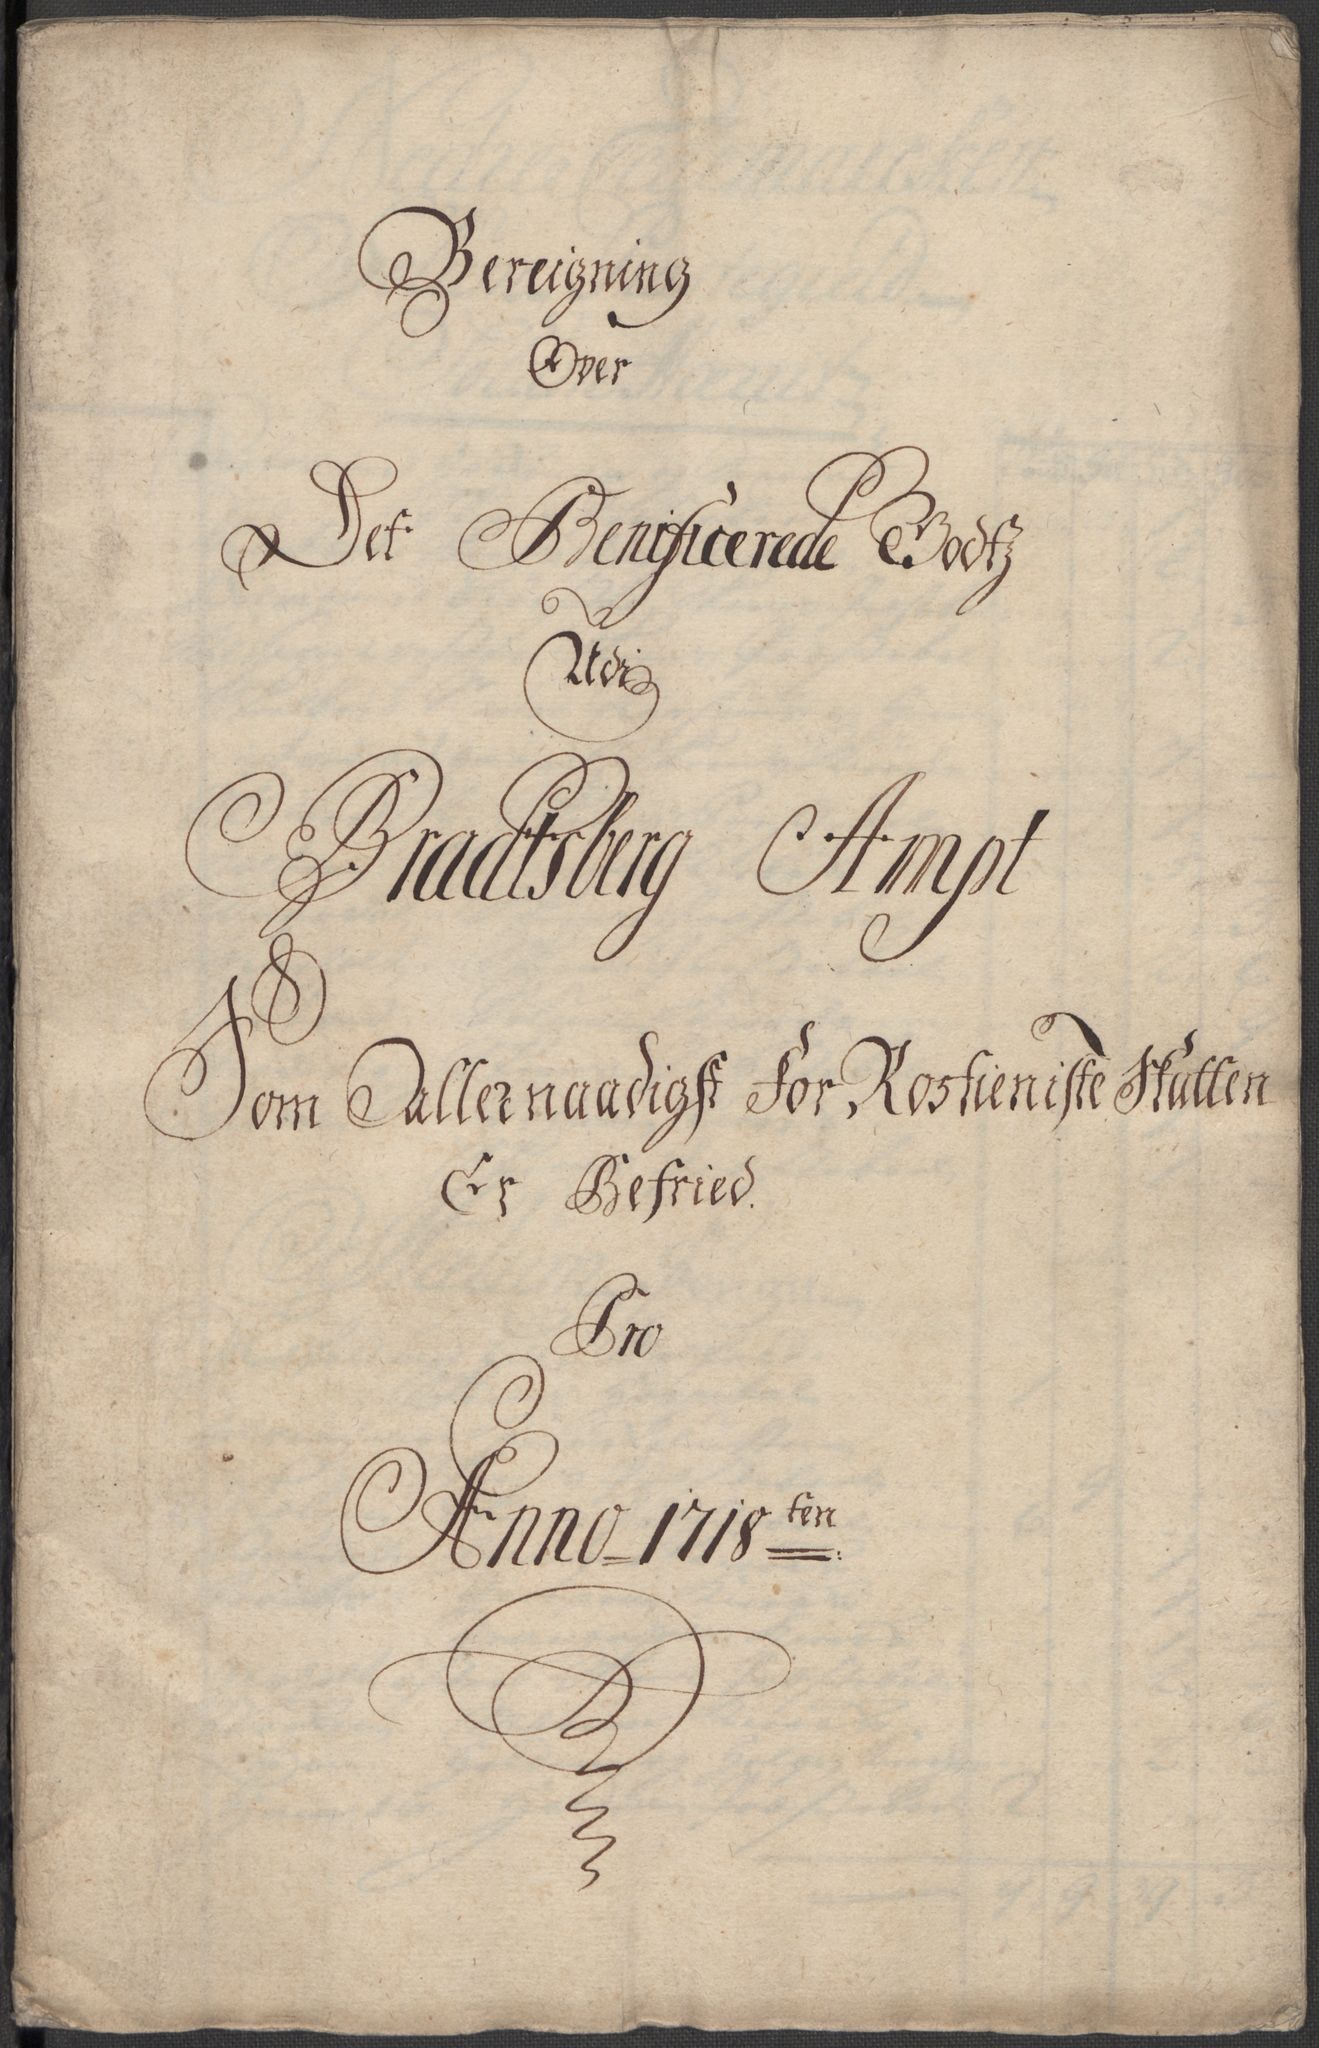 Bereigning
Over
Det Benificerede Godtz
Udi
Bradtsberg Ampt
Som allernaadigst For Rostieniste Skatten
Er Befried.
Pro
Anno 1718 ten